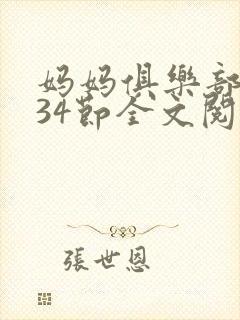 妈妈俱樂部
34節全文閱
張世恩